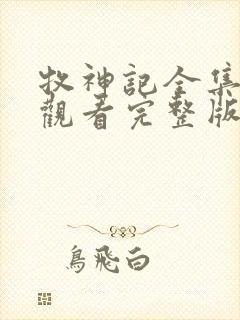 牧神記全集
觀看完整版
鳥飛白